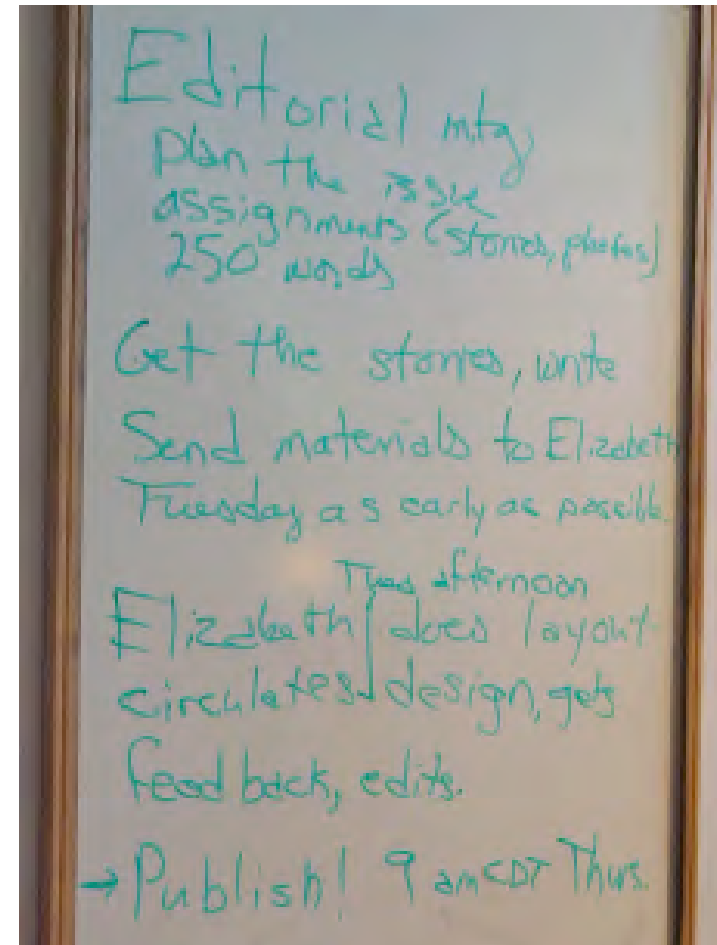 Editorial mtg,
plan the issue
assignments (stories, photos)
250 words
Get the stories, write
Send materials to Elizabeth
Tuesday as early as possible.
Tues afternoon
Elizabeth does layout
circulates design, gets
feedback, edits.
→ Publish! 9 am CDT Thurs.